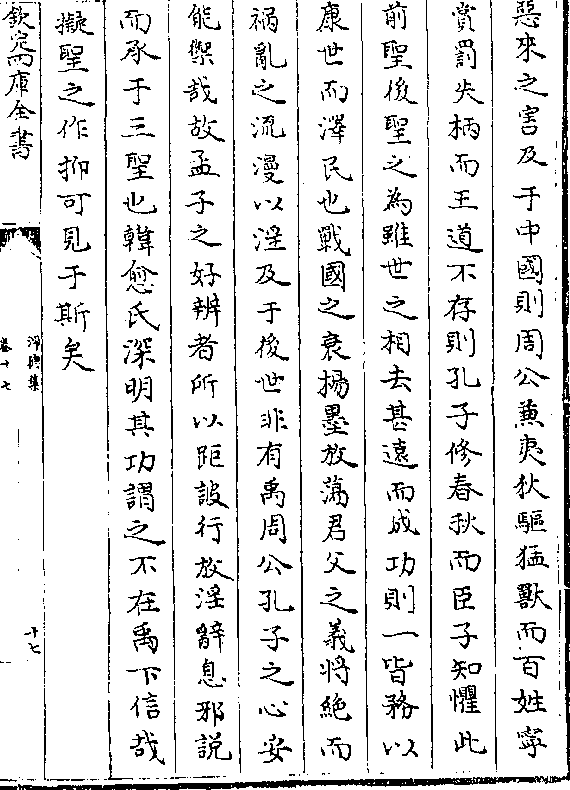 惡來之害及于中國則周公兼夷狄驅猛獸而百姓寧
賞罰失柄而王道不存則孔子修春秋而臣子知懼此
前聖後聖之為雖世之相去甚遠而成功則一皆務以
康世而澤民也戰國之衰揚墨放蕩君父之義將絶而
禍亂之流漫以淫及于後世非有禹周公孔子之心安
能禦哉故孟子之好辨者所以距詖行放淫辭息邪説
而承于三聖也韓愈氏深明其功謂之不在禹下信哉
擬聖之作抑可見于斯矣
欽定四庫全書
卷十七
十七